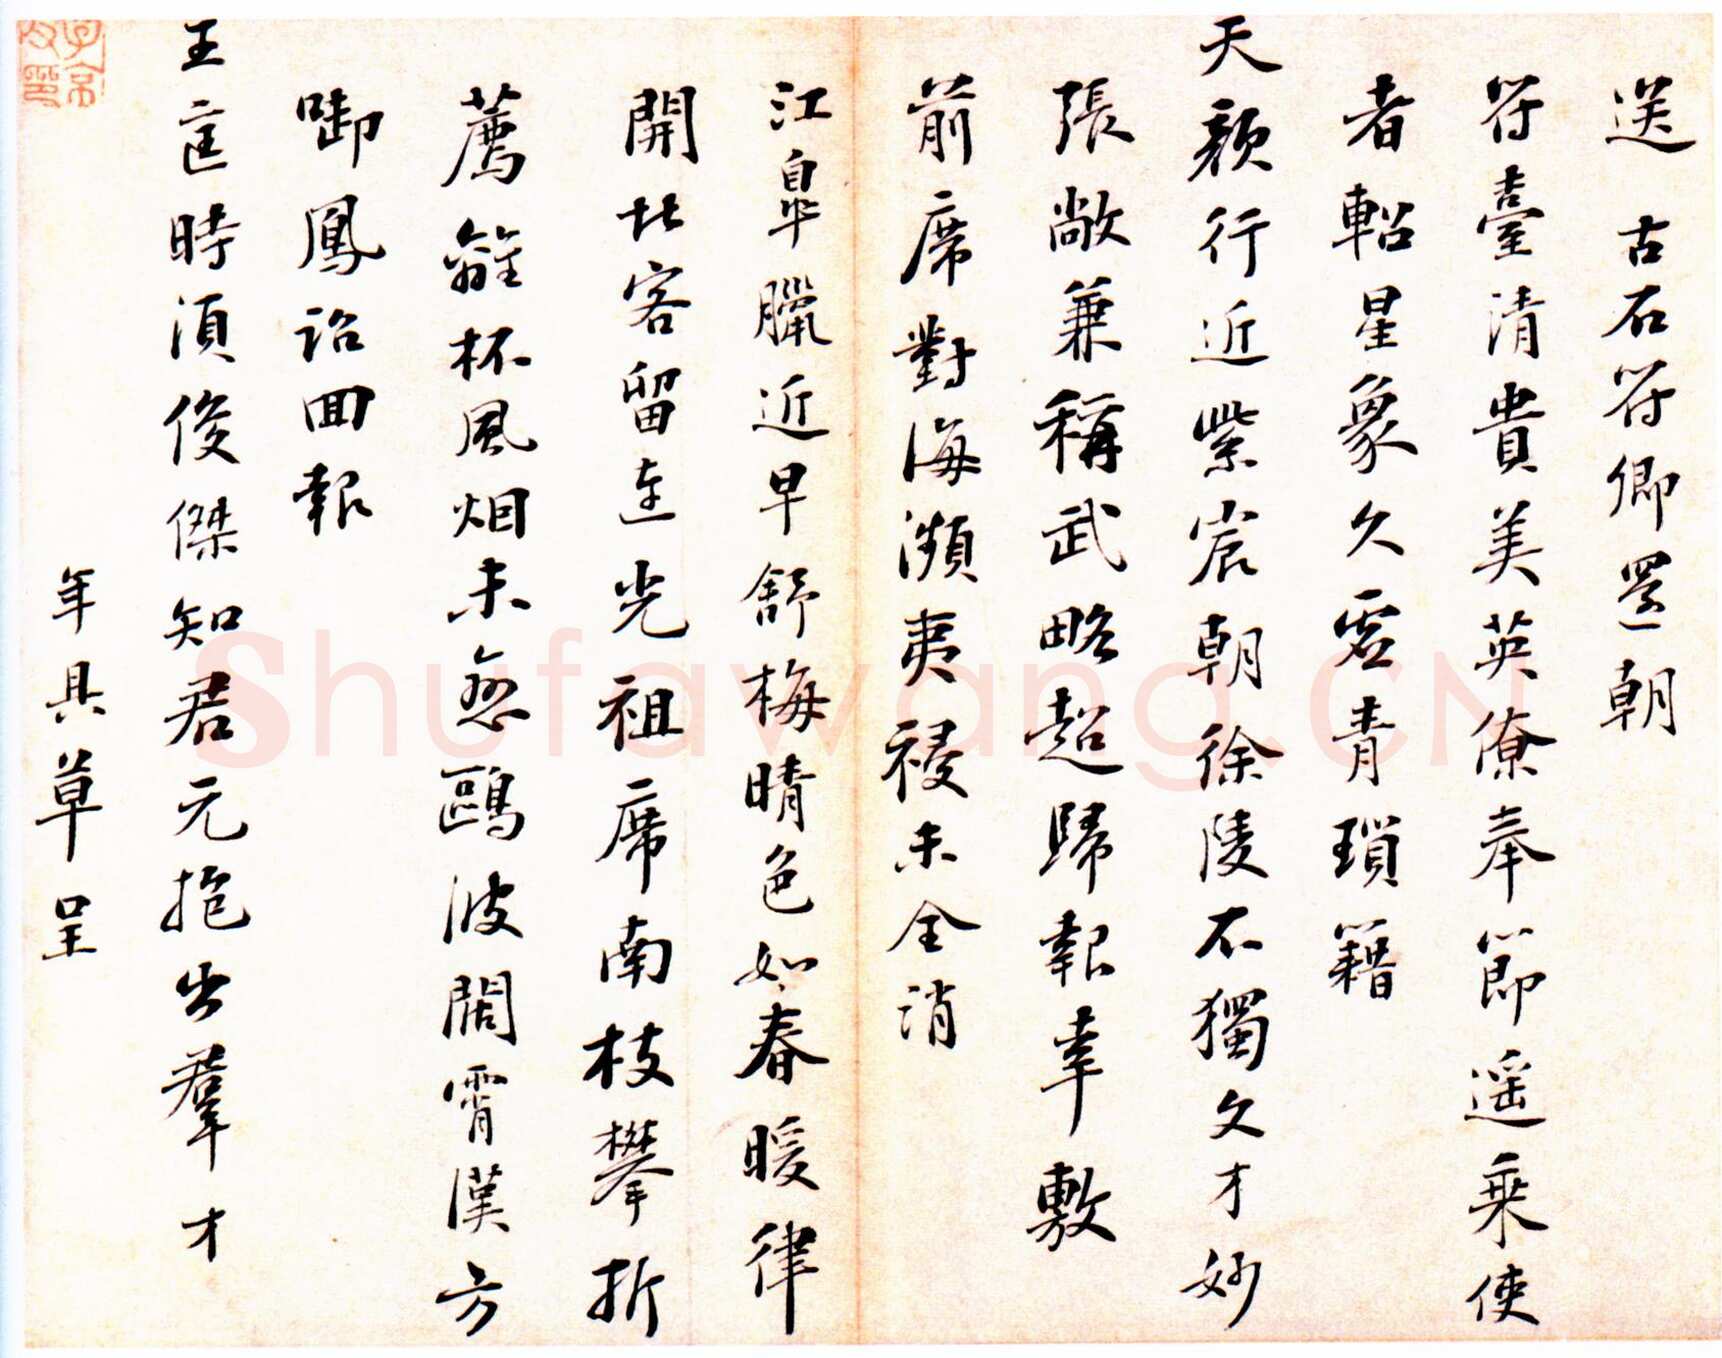 送古石符卿還朝
符臺清貴美英僚奉節遥乘使
者軺星象久虛青瑣籍
天顏行近紫宸朝徐陵不獨文才妙
張敞兼稱武略超歸報幸敷
前席對海瀕夷祲未全消
江皐臘近早舒梅晴色如春暖律
開北客留連光祖席南枝攀折
薦離杯風烟未忽鷗波闊霄漢方
啣鳳詔回報
王匡時須俊傑知君元抱出羣才
年具草呈
Shufawang.CN